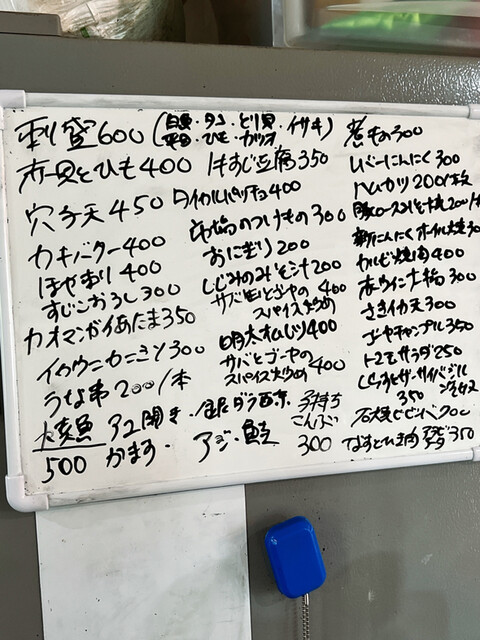 刺盛600(白貝・タコ・とり貝・イサキ
平目・ひも・カツオ)
赤貝とひも400
穴子天450
カキバター400
ほや刺り400
すじこおろし300
カオマンガイあたま350
イカウニカニミソ300
うな串200/本
焼魚 アコ開き・銀ダラ西京
500 かます・アジ・鮭
子持ち
こんぶ
300
牛すじ豆腐350
タイカルパッチョ400
のつけもの300
おにぎり200
しじみのみそ汁200
サバ缶とゴーヤの
スパイス炒め 400
明太オムレツ400
サバとゴーヤの
スパイス炒め400
煮もの300
レバーにんにく300
ハムカツ200/枚
豚ロースみそ焼200/
新にんにくホイル焼30
カルビ焼肉400
赤ウインナー 300
さきイカ天300
ゴーヤチャンプル350
トマトサラダ250
しらすとザーサイバジル
350
石焼ビビンバ
なすとひき肉 350